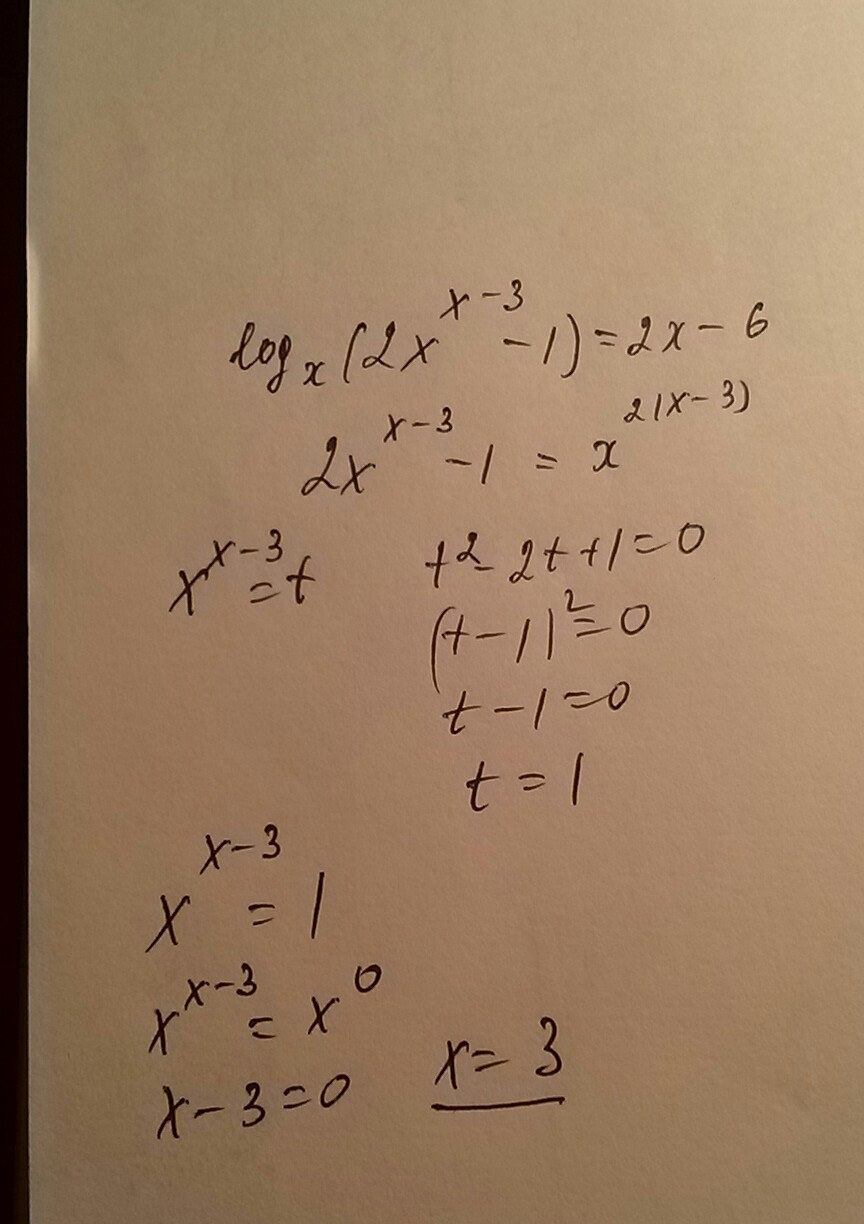 log_x (2x^{x-3} - 1) = 2x - 6
2x^{x-3} - 1 = x^{2(x-3)}
x^{x-3} = t    t^2 - 2t + 1 = 0
(t - 1)^2 = 0
t - 1 = 0
t = 1
x^{x-3} = 1
x^{x-3} = x^0
x - 3 = 0    x = 3